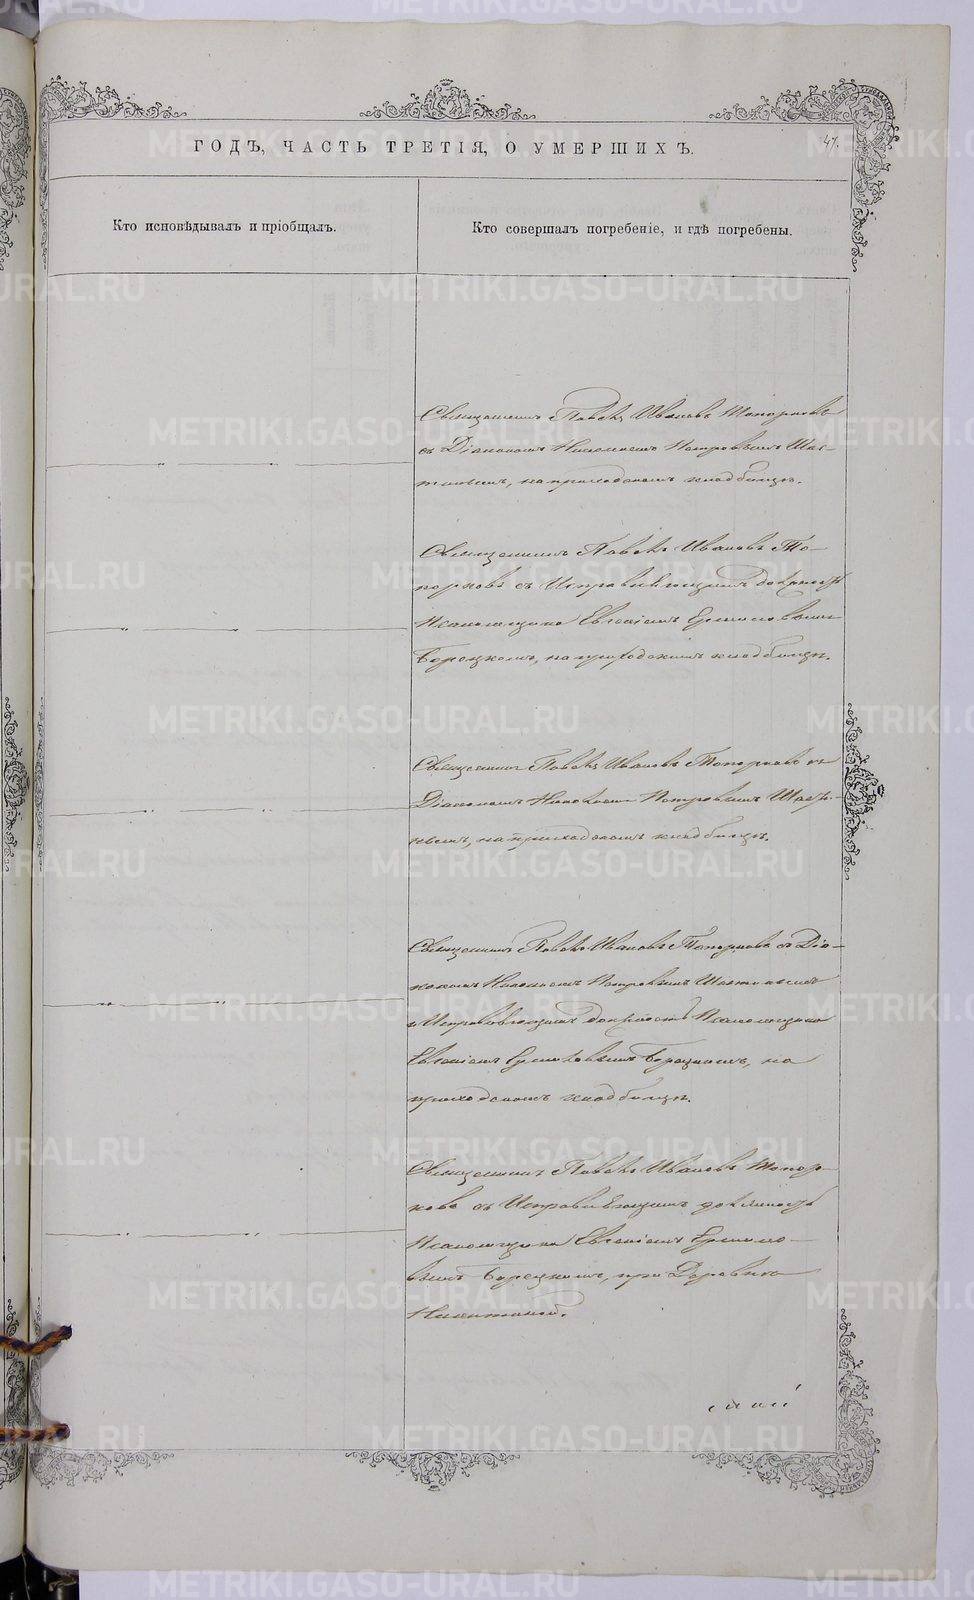 ГОДЪ, ЧАСТЬ ТРЕТІЯ, О УМЕРШИХЪ.
47.
Кто исповѣдывалъ и пріобщалъ.
Кто совершалъ погребеніе, и гдѣ погребены.
Священникъ Павелъ Ивановъ Топорковъ
съ Діакономъ Николаемъ Петровымъ
на приходскомъ кладбищѣ.
Священникъ Павелъ Ивановъ То-
порковъ съ Исправляющимъ должность
Псаломщика Евгеніемъ
на приходскомъ кладбищѣ.
Священникъ Павелъ Ивановъ Топорковъ съ
Діакономъ Николаемъ Петровымъ
на приходскомъ кладбищѣ.
Священникъ Павелъ Ивановъ Топорковъ съ Діа-
кономъ Николаемъ Петровымъ
и Исправляющимъ должность Псаломщика
Евгеніемъ на
приходскомъ кладбищѣ.
Священникъ Павелъ Ивановъ Топор-
ковъ съ Исправляющимъ должность
Псаломщика Евгеніемъ
при Деревнѣ
METRIKI.GASO-URAL.RU